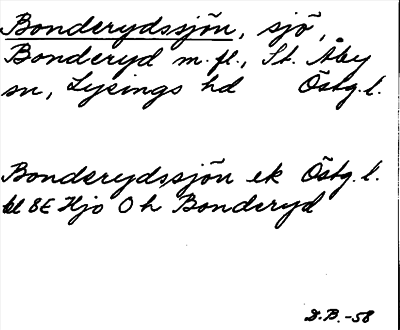 Bonderydssjön, sjö,
Bonderyd m. fl., St. Åby
sn, Lysings hd Östg. l.
Bonderydssjön ek Östg. l.
bl 8E Hjo 0 h Bonderyd
D.B.-58